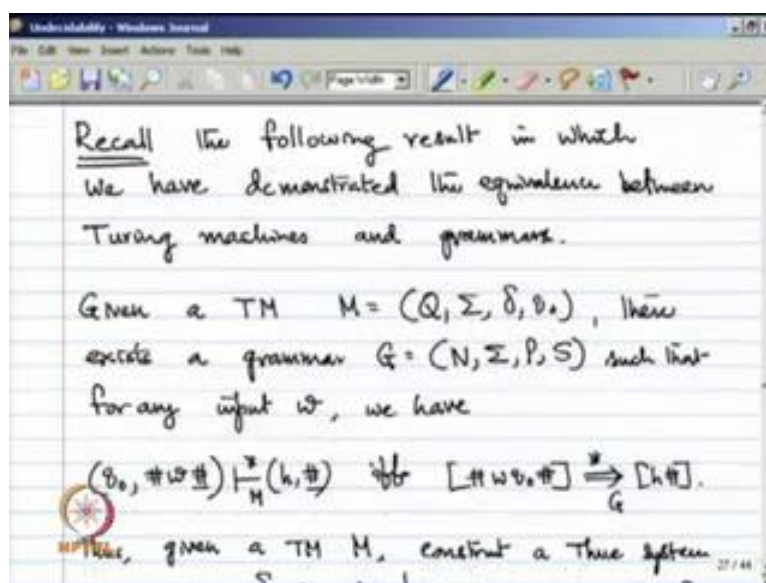 Undecidability - Windows Journal
File Edit View Insert Actions Tools Help
Page Width
Recall the following result in which
we have demonstrated the equivalence between
Turing machines and grammars.
Given a TM M = (Q, Σ, δ, q₀), there
exists a grammar G = (N, Σ, P, S) such that
for any input w, we have
(q₀, #w#̲) ⊢*_M (h, #̲) iff [#wq₀#] ⇒*_G [h#].
Thus, given a TM M, construct a Thue system
27 / 44